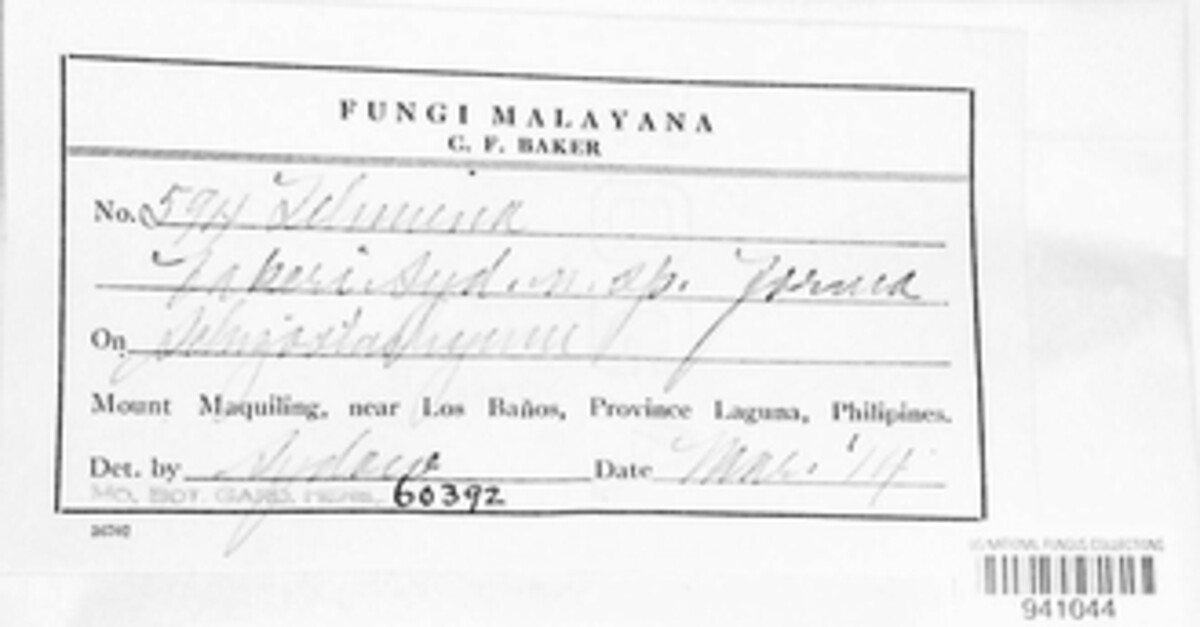 FUNGI MALAYANA
C. F. BAKER
No. 594 Telimena
Bakeri Syd. n. sp. Forma
On Schizostachyum
Mount Maquiling, near Los Baños, Province Laguna, Philipines.
Det. by Sydow Date Mar. '14
MO. BOT. GARD. HERB. 60392
US NATIONAL FUNGUS COLLECTIONS
941044